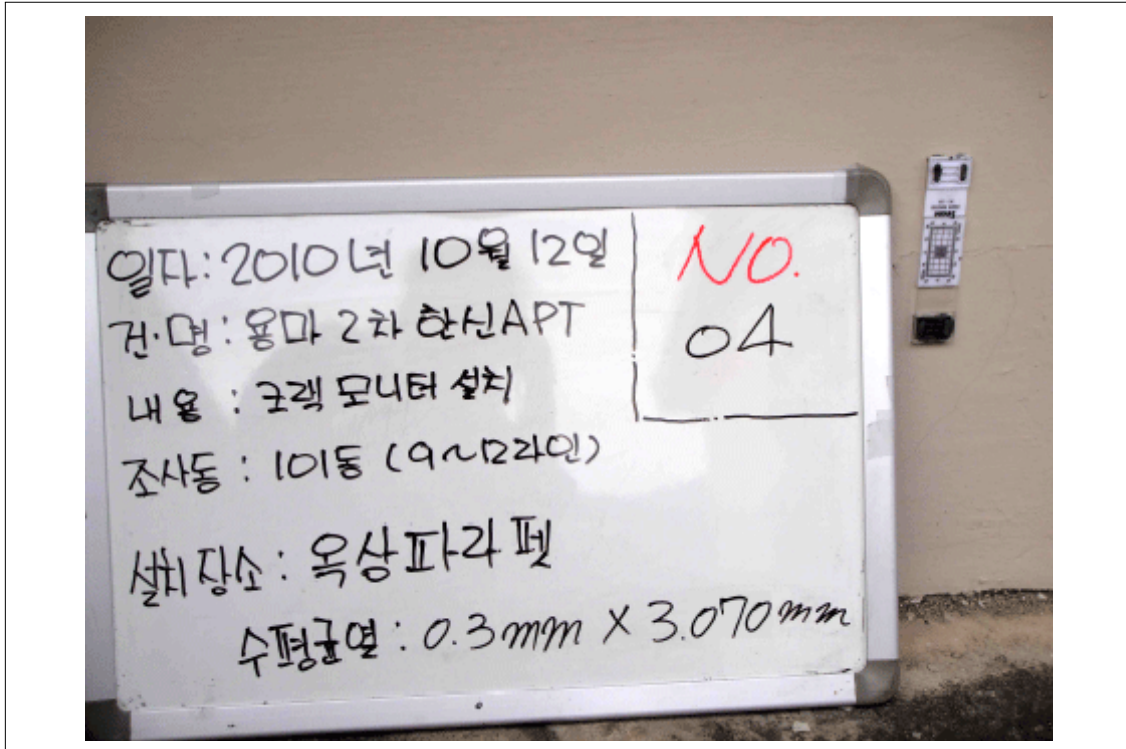 일자: 2010년 10월 12일
건·명: 용마 2차 한신APT
내용 : 크랙 모니터 설치
조사동 : 101동 (9~12라인)
설치장소 : 옥상파라펫
수평균열 : 0.3mm X 3.070mm
NO.
04